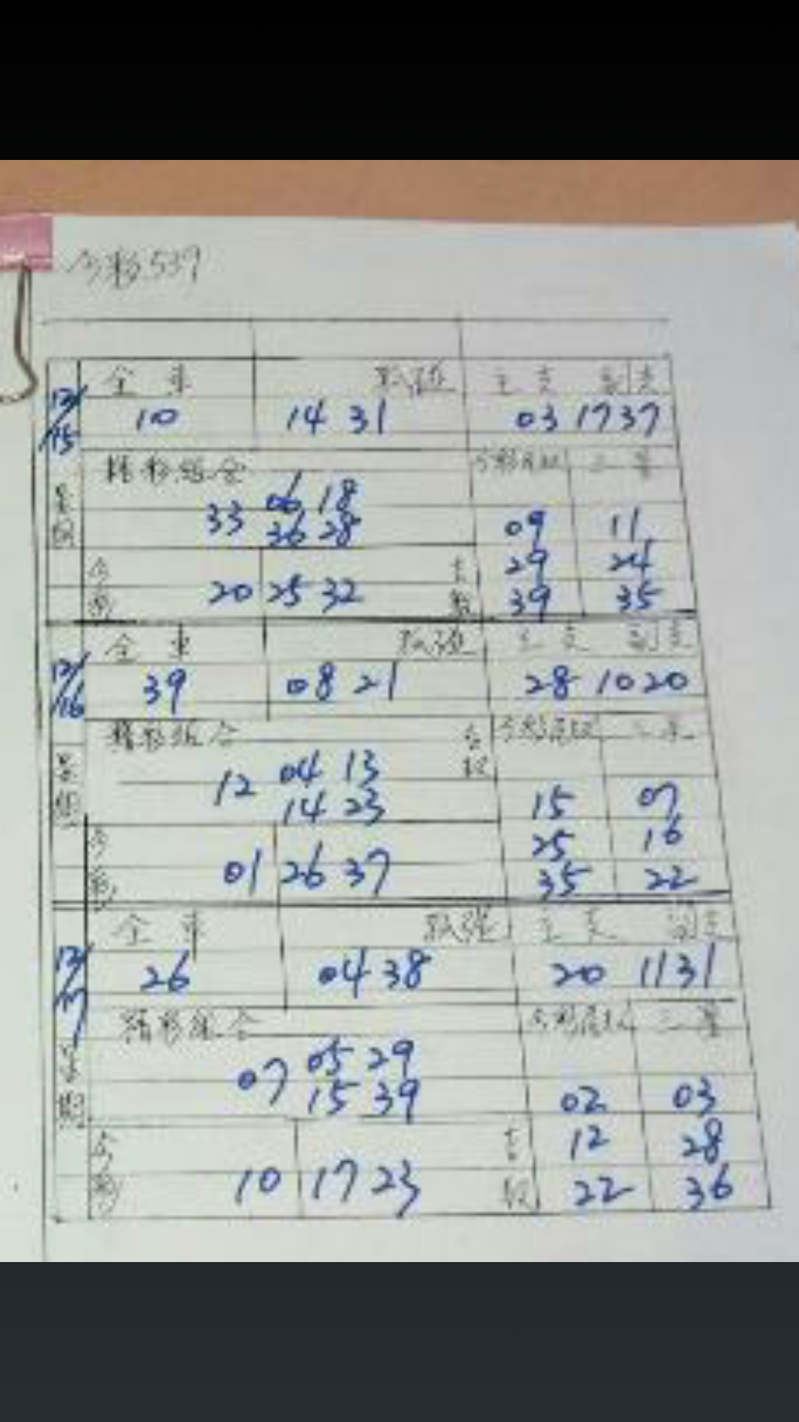 今彩539
全車 孤碰 主支 副支
12/15 10 14 31 03 17 37
精彩組合 三星
06 18
33 36 28 09 11
星期 29 24
今彩 20 25 32 39 35
全車 孤碰 主支 副支
12/16 39 08 21 28 10 20
精彩組合
04 13
12 14 23 15 07
星期 25 16
今彩 01 26 37 35 22
全車 孤碰 主支 副支
12/17 26 04 38 20 11 31
精彩組合 三星
05 29
07 15 39 02 03
星期 12 28
今彩 10 17 23 22 36